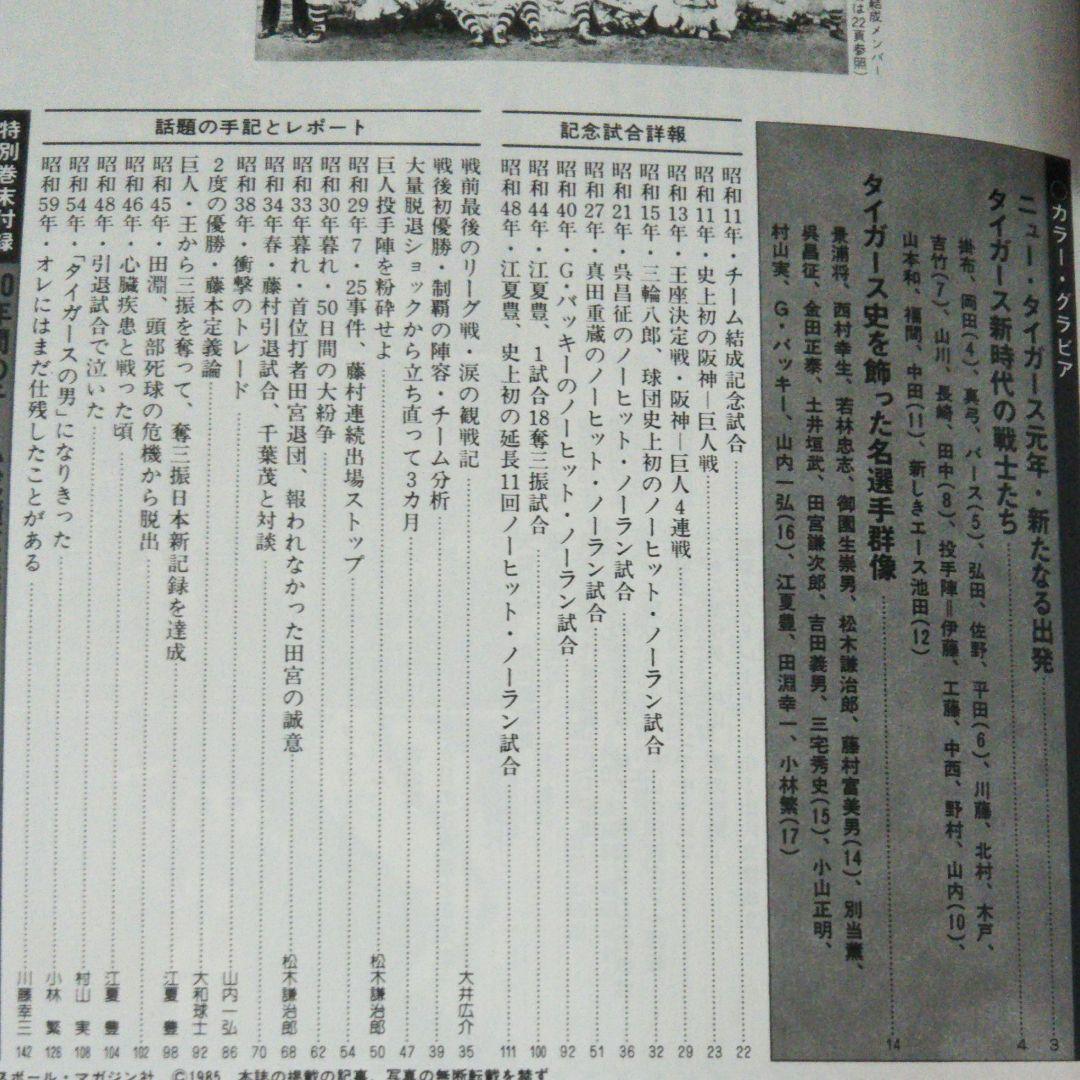 結成メンバー
は22頁参照)
○カラー・グラビア
ニュー・タイガース元年・新たなる出発 3
タイガース新時代の戦士たち 4
掛布、岡田(4)、真弓、バース(5)、弘田、佐野、平田(6)、川藤、北村、木戸、
吉竹(7)、山川、長崎、田中(8)、投手陣=伊藤、工藤、中西、野村、山内(10)、
山本和、福間、中田(11)、新しきエース池田(12)
タイガース史を飾った名選手群像 14
景浦将、西村幸生、若林忠志、御園生崇男、松木謙治郎、藤村富美男(14)、別当薫、
呉昌征、金田正泰、土井垣武、田宮謙次郎、吉田義男、三宅秀史(15)、小山正明、
村山実、G・バッキー、山内一弘(16)、江夏豊、田淵幸一、小林繁(17)
記念試合詳報
昭和11年・チーム結成記念試合 22
昭和11年・史上初の阪神―巨人戦 23
昭和13年・王座決定戦・阪神―巨人4連戦 29
昭和15年・三輪八郎、球団史上初のノーヒット・ノーラン試合 32
昭和21年・呉昌征のノーヒット・ノーラン試合 36
昭和27年・真田重蔵のノーヒット・ノーラン試合 51
昭和40年・G・バッキーのノーヒット・ノーラン試合 92
昭和44年・江夏豊、1試合18奪三振試合 100
昭和48年・江夏豊、史上初の延長11回ノーヒット・ノーラン試合 111
話題の手記とレポート
戦前最後のリーグ戦・涙の観戦記 大井広介 35
戦後初優勝・制覇の陣容・チーム分析 39
大量脱退ショックから立ち直って3カ月 47
巨人投手陣を粉砕せよ 松木謙治郎 50
昭和29年7・25事件、藤村連続出場ストップ 54
昭和30年暮れ・50日間の大紛争 62
昭和33年暮れ・首位打者田宮退団、報われなかった田宮の誠意 松木謙治郎 68
昭和34年春・藤村引退試合、千葉茂と対談 70
昭和38年・衝撃のトレード 山内一弘 86
2度の優勝・藤本定義論 大和球士 92
巨人・王から三振を奪って、奪三振日本新記録を達成 江夏 豊 98
昭和45年・田淵、頭部死球の危機から脱出 102
昭和46年・心臓疾患と戦った頃 江夏 豊 104
昭和48年・引退試合で泣いた 村山 実 108
昭和54年・「タイガースの男」になりきった 小林 繁 126
昭和59年・オレにはまだ仕残したことがある 川藤幸三 142
特別巻末付録
スボール・マガジン社 ©1985 本誌の掲載の記事、写真の無断転載を禁ず